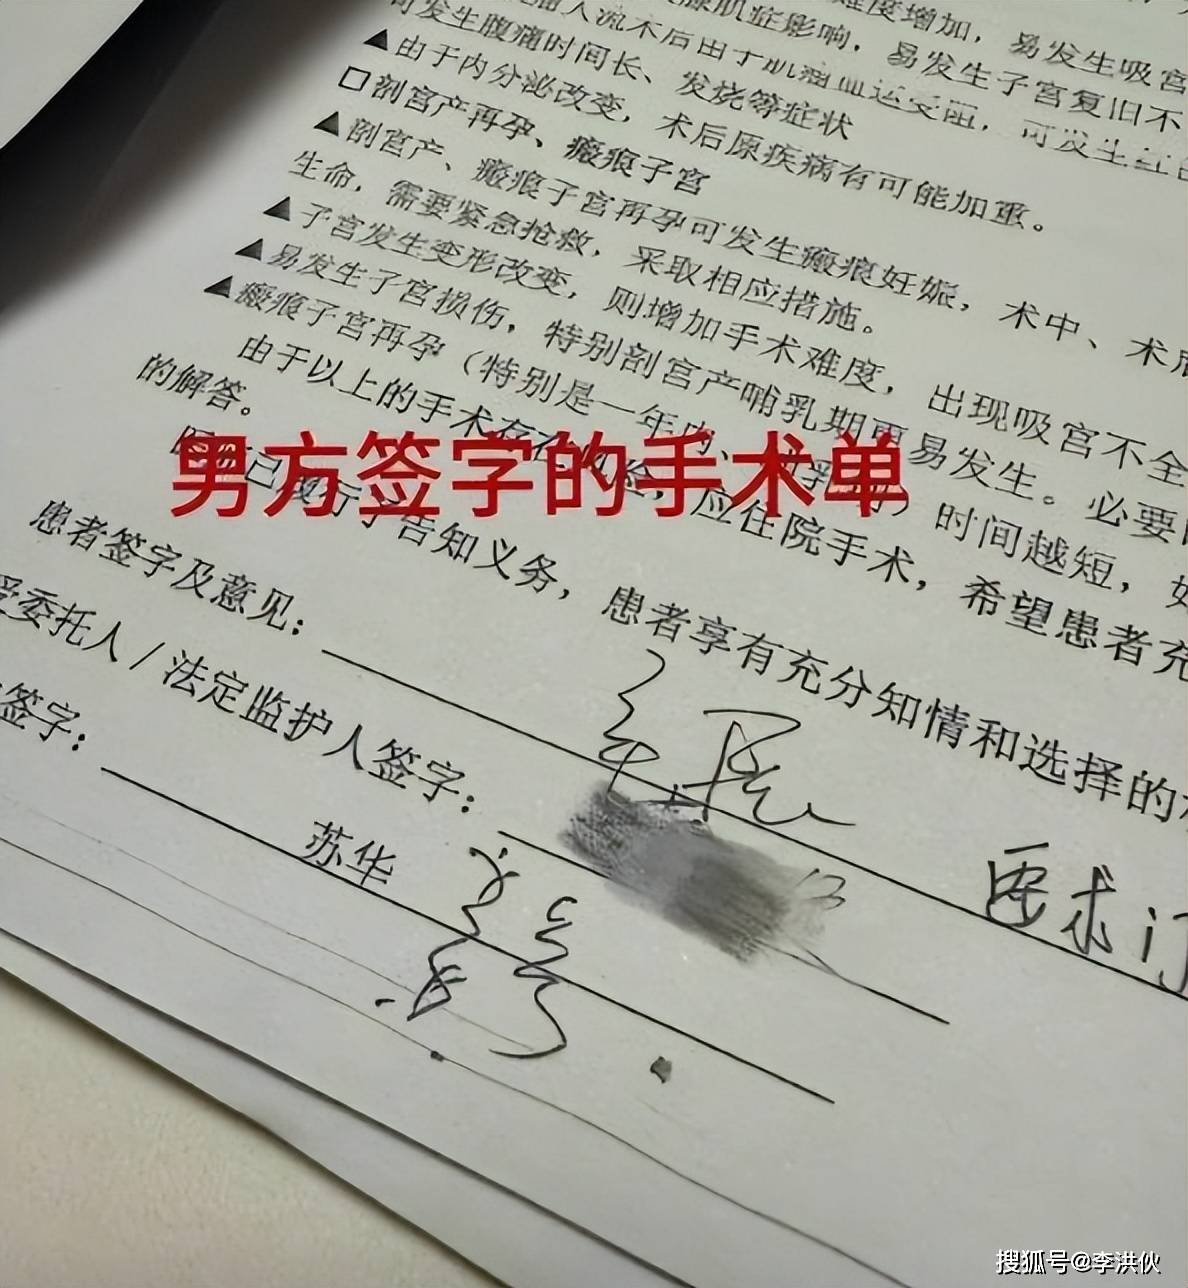 难度增加，易发生吸宫
腺肌症影响，易发生子宫复旧不
人流术后由于肌瘤血运受阻，可发生红色
可发生腹痛时间长、发烧等症状
▲由于内分泌改变，术后原疾病有可能加重。
□剖宫产再孕、瘢痕子宫
▲剖宫产、瘢痕子宫再孕可发生瘢痕妊娠，术中、术后
生命，需要紧急抢救，采取相应措施。
▲子宫发生变形改变，则增加手术难度，出现吸宫不全
▲易发生子宫损伤，特别剖宫产哺乳期更易发生。必要
▲瘢痕子宫再孕（特别是一年内、哺乳期）时间越短，
由于以上的手术存在风险，应住院手术，希望患者充
的解答。
男方签字的手术单
告知义务，患者享有充分知情和选择的
患者签字及意见：
要求
受委托人/法定监护人签字：
签字：
苏华
搜狐号@李洪伙